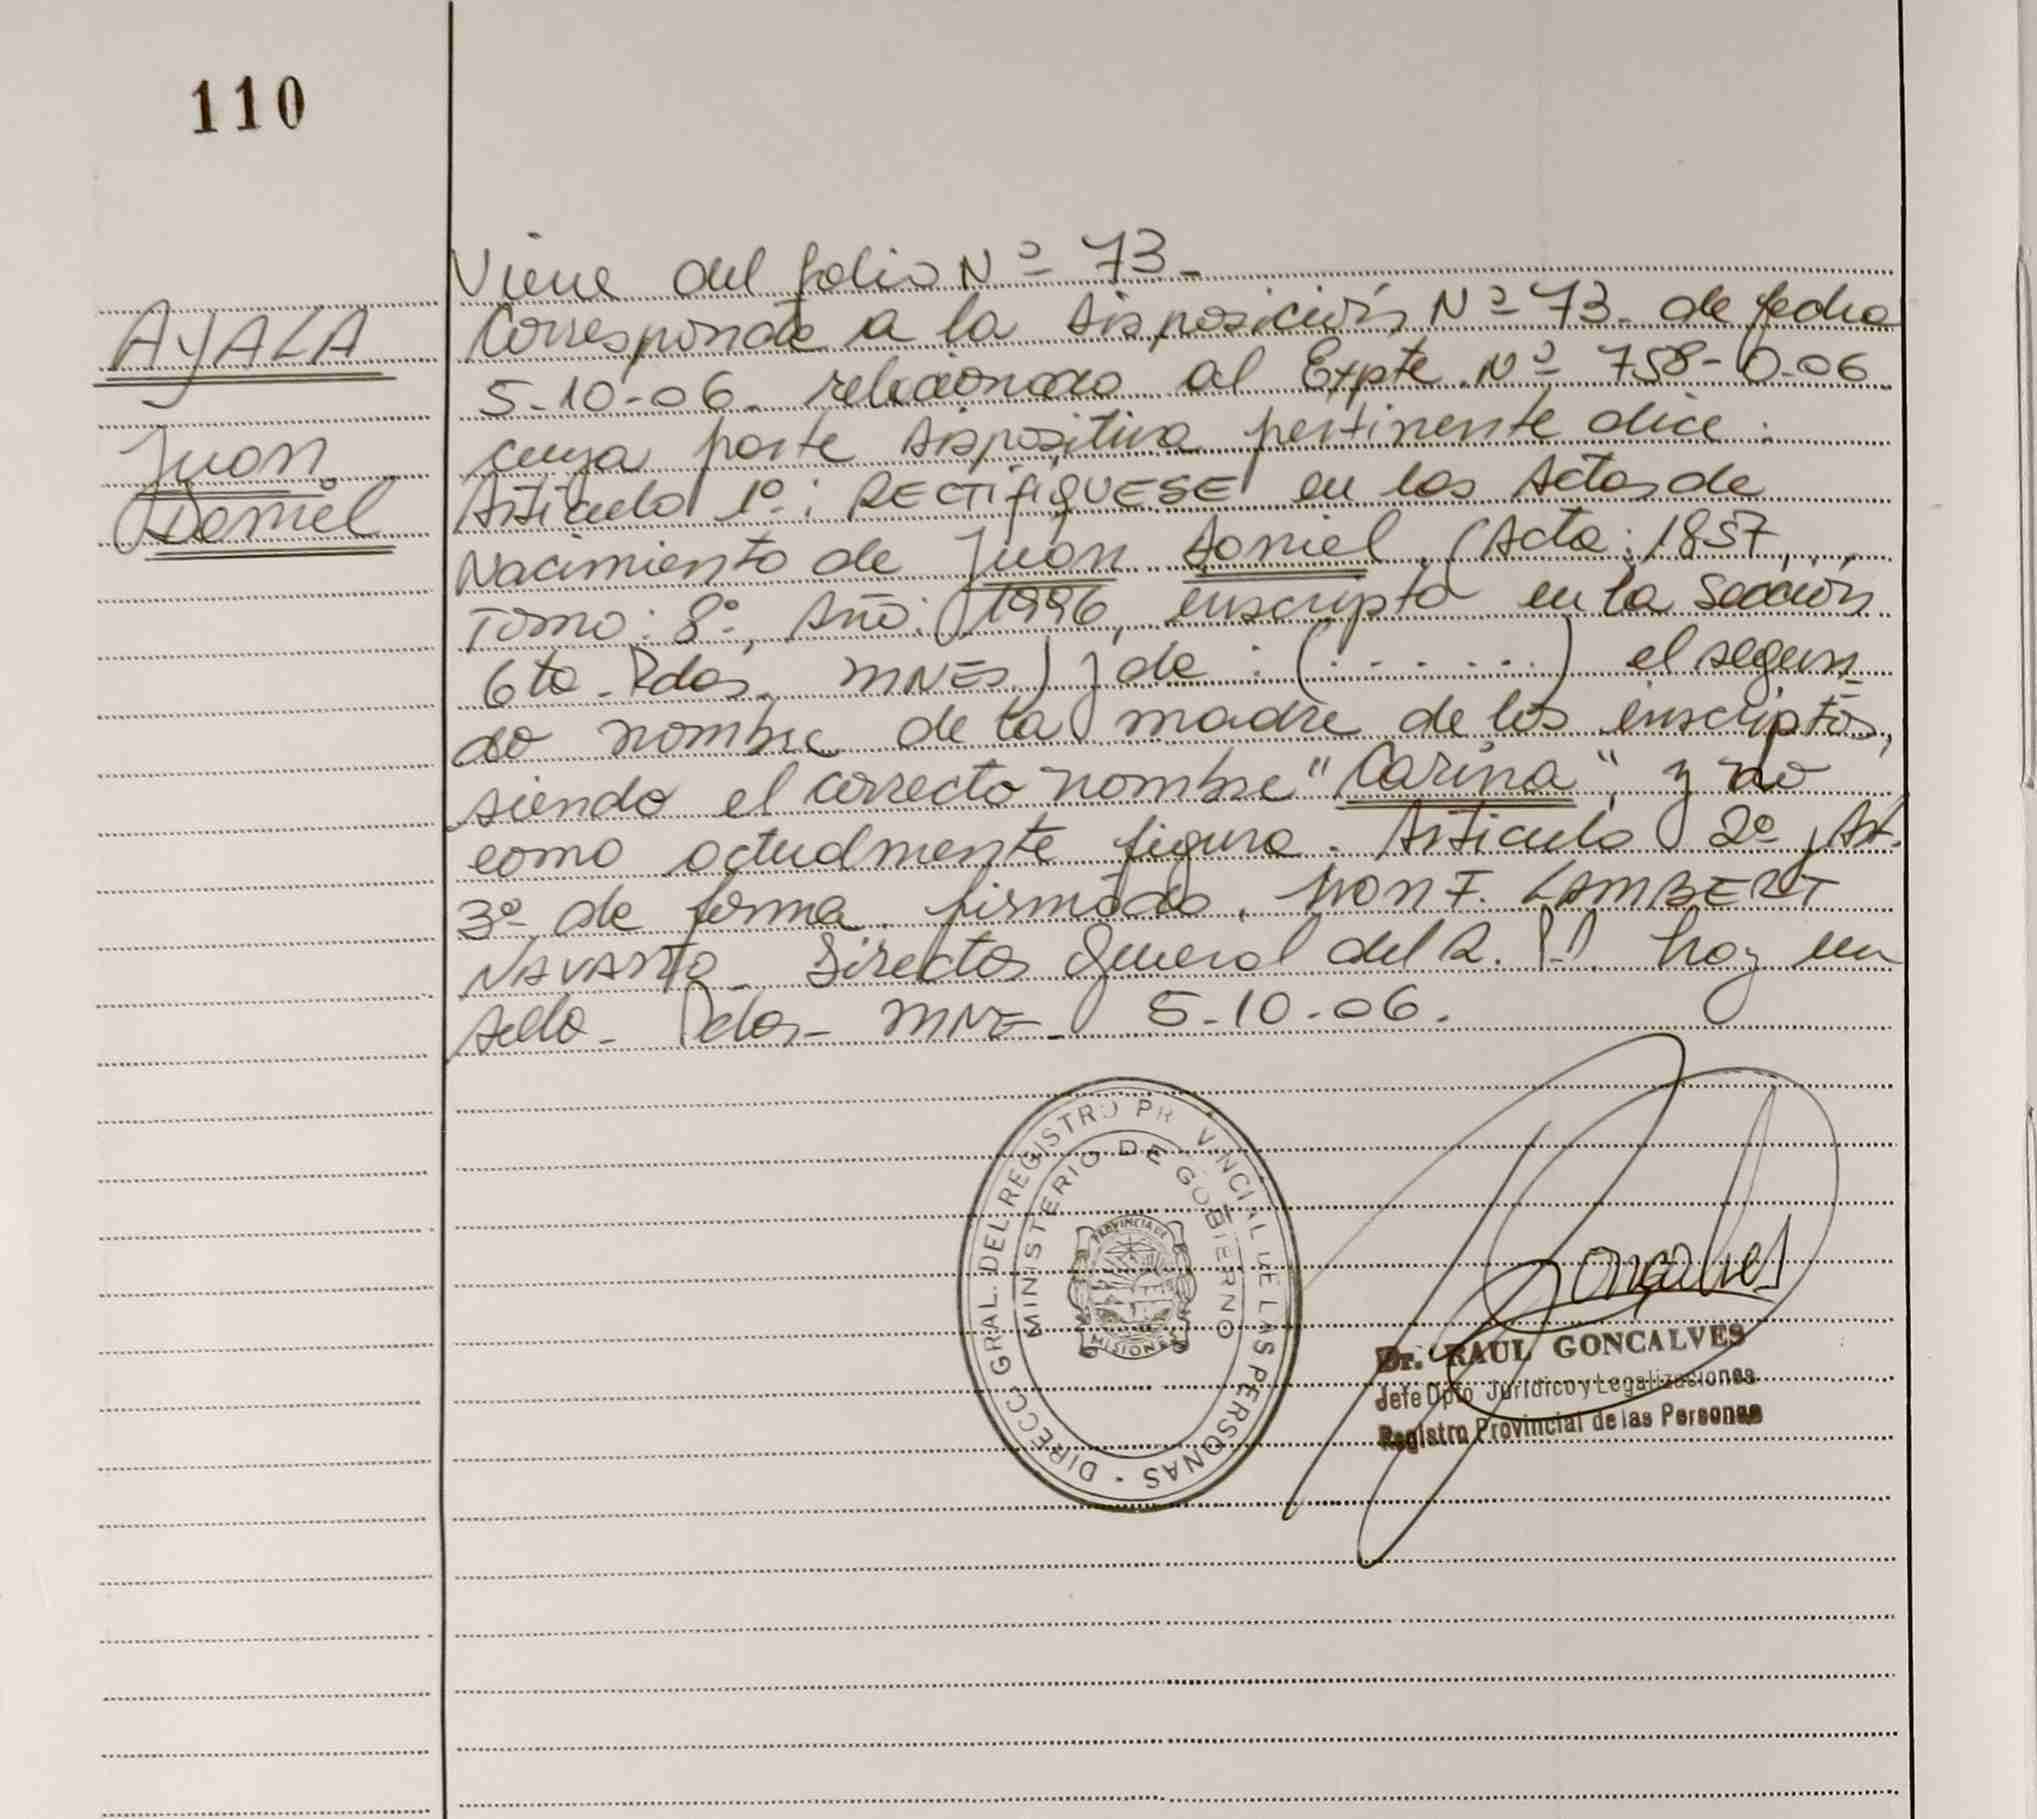 110
Viene del folio Nº 73-
AYALA
Juan
Daniel
Corresponde a la Disposición Nº 73- de fecha
5-10-06- relacionado al Expte. Nº 758-0-06
cuya parte dispositiva pertinente dice:
Artículo 1º: RECTIFIQUESE en las Actas de
Nacimiento de Juan Daniel, (Acta: 1857,
Tomo: 8º, Año: 1996, inscripta en la Sección
6ta- Pdas. MNES) y de: (.........) el segun
do nombre de la madre de los inscriptos,
siendo el correcto nombre "Carina", y no
como actualmente figura. Artículo 2º y Art.
3º de forma. firmado. F. LAMBERT
Director General del R.P.P. hay un
sello- Pdas- MNE- 5-10-06.
DIRECC. GRAL. DEL REGISTRO PROVINCIAL DE LAS PERSONAS -
MINISTERIO DE GOBIERNO
PROVINCIA DE
MISIONES
Goncalves
Dr. RAUL GONCALVES
Jefe Dpto Jurídico y Legalizaciones
Registro Provincial de las Personas